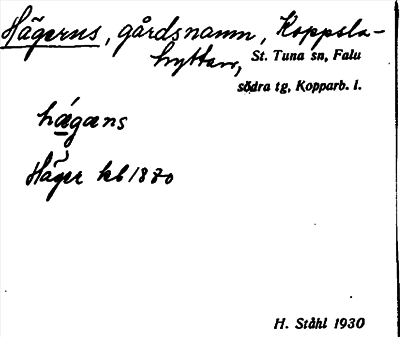 Hägerns, gårdsnamn, Koppsla-
hyttan, St. Tuna sn, Falu
södra tg, Kopparb. l.
hægæns
Häger kb 1880
H. Ståhl 1930